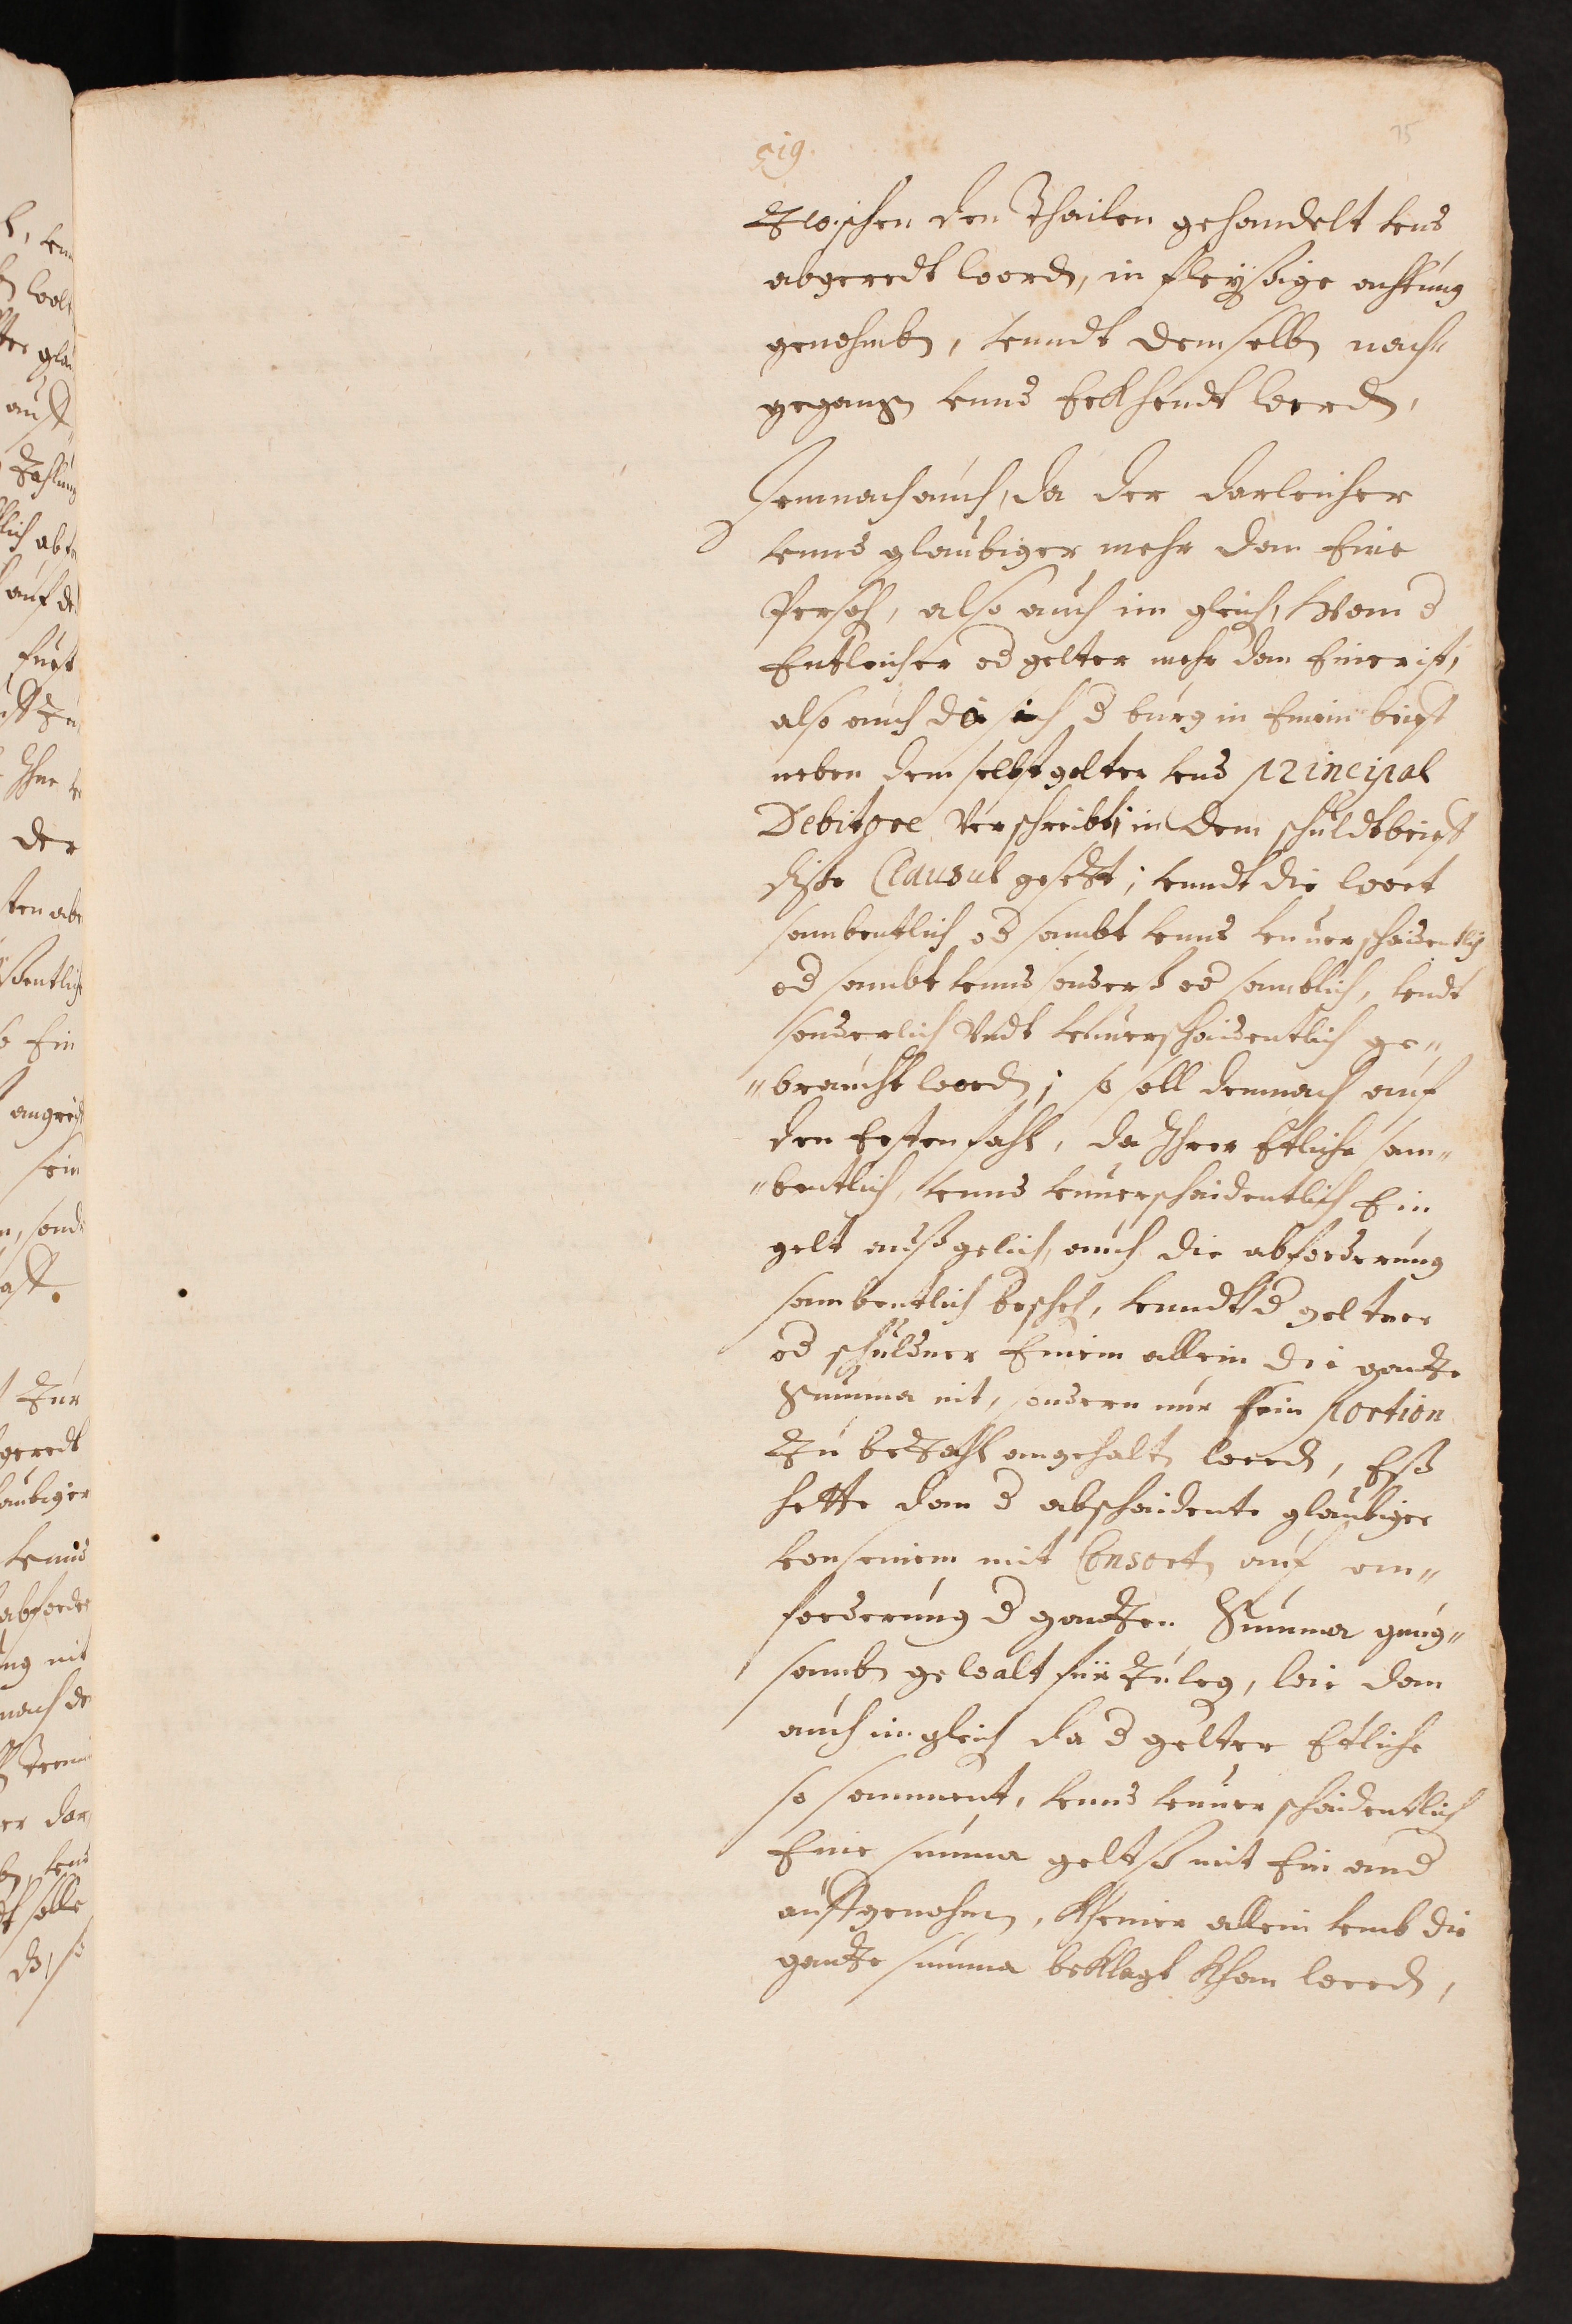 75
519.
Zwischen den Thailen gehandelt vnd
abgeredt word, in fleyssige achtung
genohmbn, vnndt demselbn nach=
gegangn vnnd Erkhendt werdn,
Demnach auch, da der darleicher
vnnd glaubiger mehr dan Eine
Persohn, also auch im gleichn, wann d
Entleicher od gelter mehr dan Einer ist,
also auch da sich d burg in Einem brieff
neben dem selbstgelter vnd principal
Debitore verschreibt, in dem schuldtbrieff
diße Clausul gesetzt; vnndt die wort
sambentlich od sambt vnnd vnuerschaidentlich
od sambt vnnd sonders od samblich, vndt
sonderlich Vndt vnuerschaidentlich ge=
=braucht wordn; so soll demnach auf
den Ersten fahl, da Ihrer Etliche sam=
=bentlich, vnnd vnuerschaidentlich Ein
gelt außgelichn, auch die abforderung
sambentlich beschehn, vnndt d geltner
od schuldner Einem allein die gantze
Summa nit, sondern nur sein portion
Zu bezahln angehaltn werdn, Eß
hette dan d abschaidente glaubiger
von seinem mit Consortn auf ein=
forderung d gantzen Summa gnug=
sambn gewalt fürzulegn, wie dan
auch im gleichn da d gelter Etliche
so samment, vnnd vnuerschaidentlich
Eine summa geltß mit Ein and
auffgenohmen, Kheiner allein vmb die
gantze summa beklagt khan werdn,